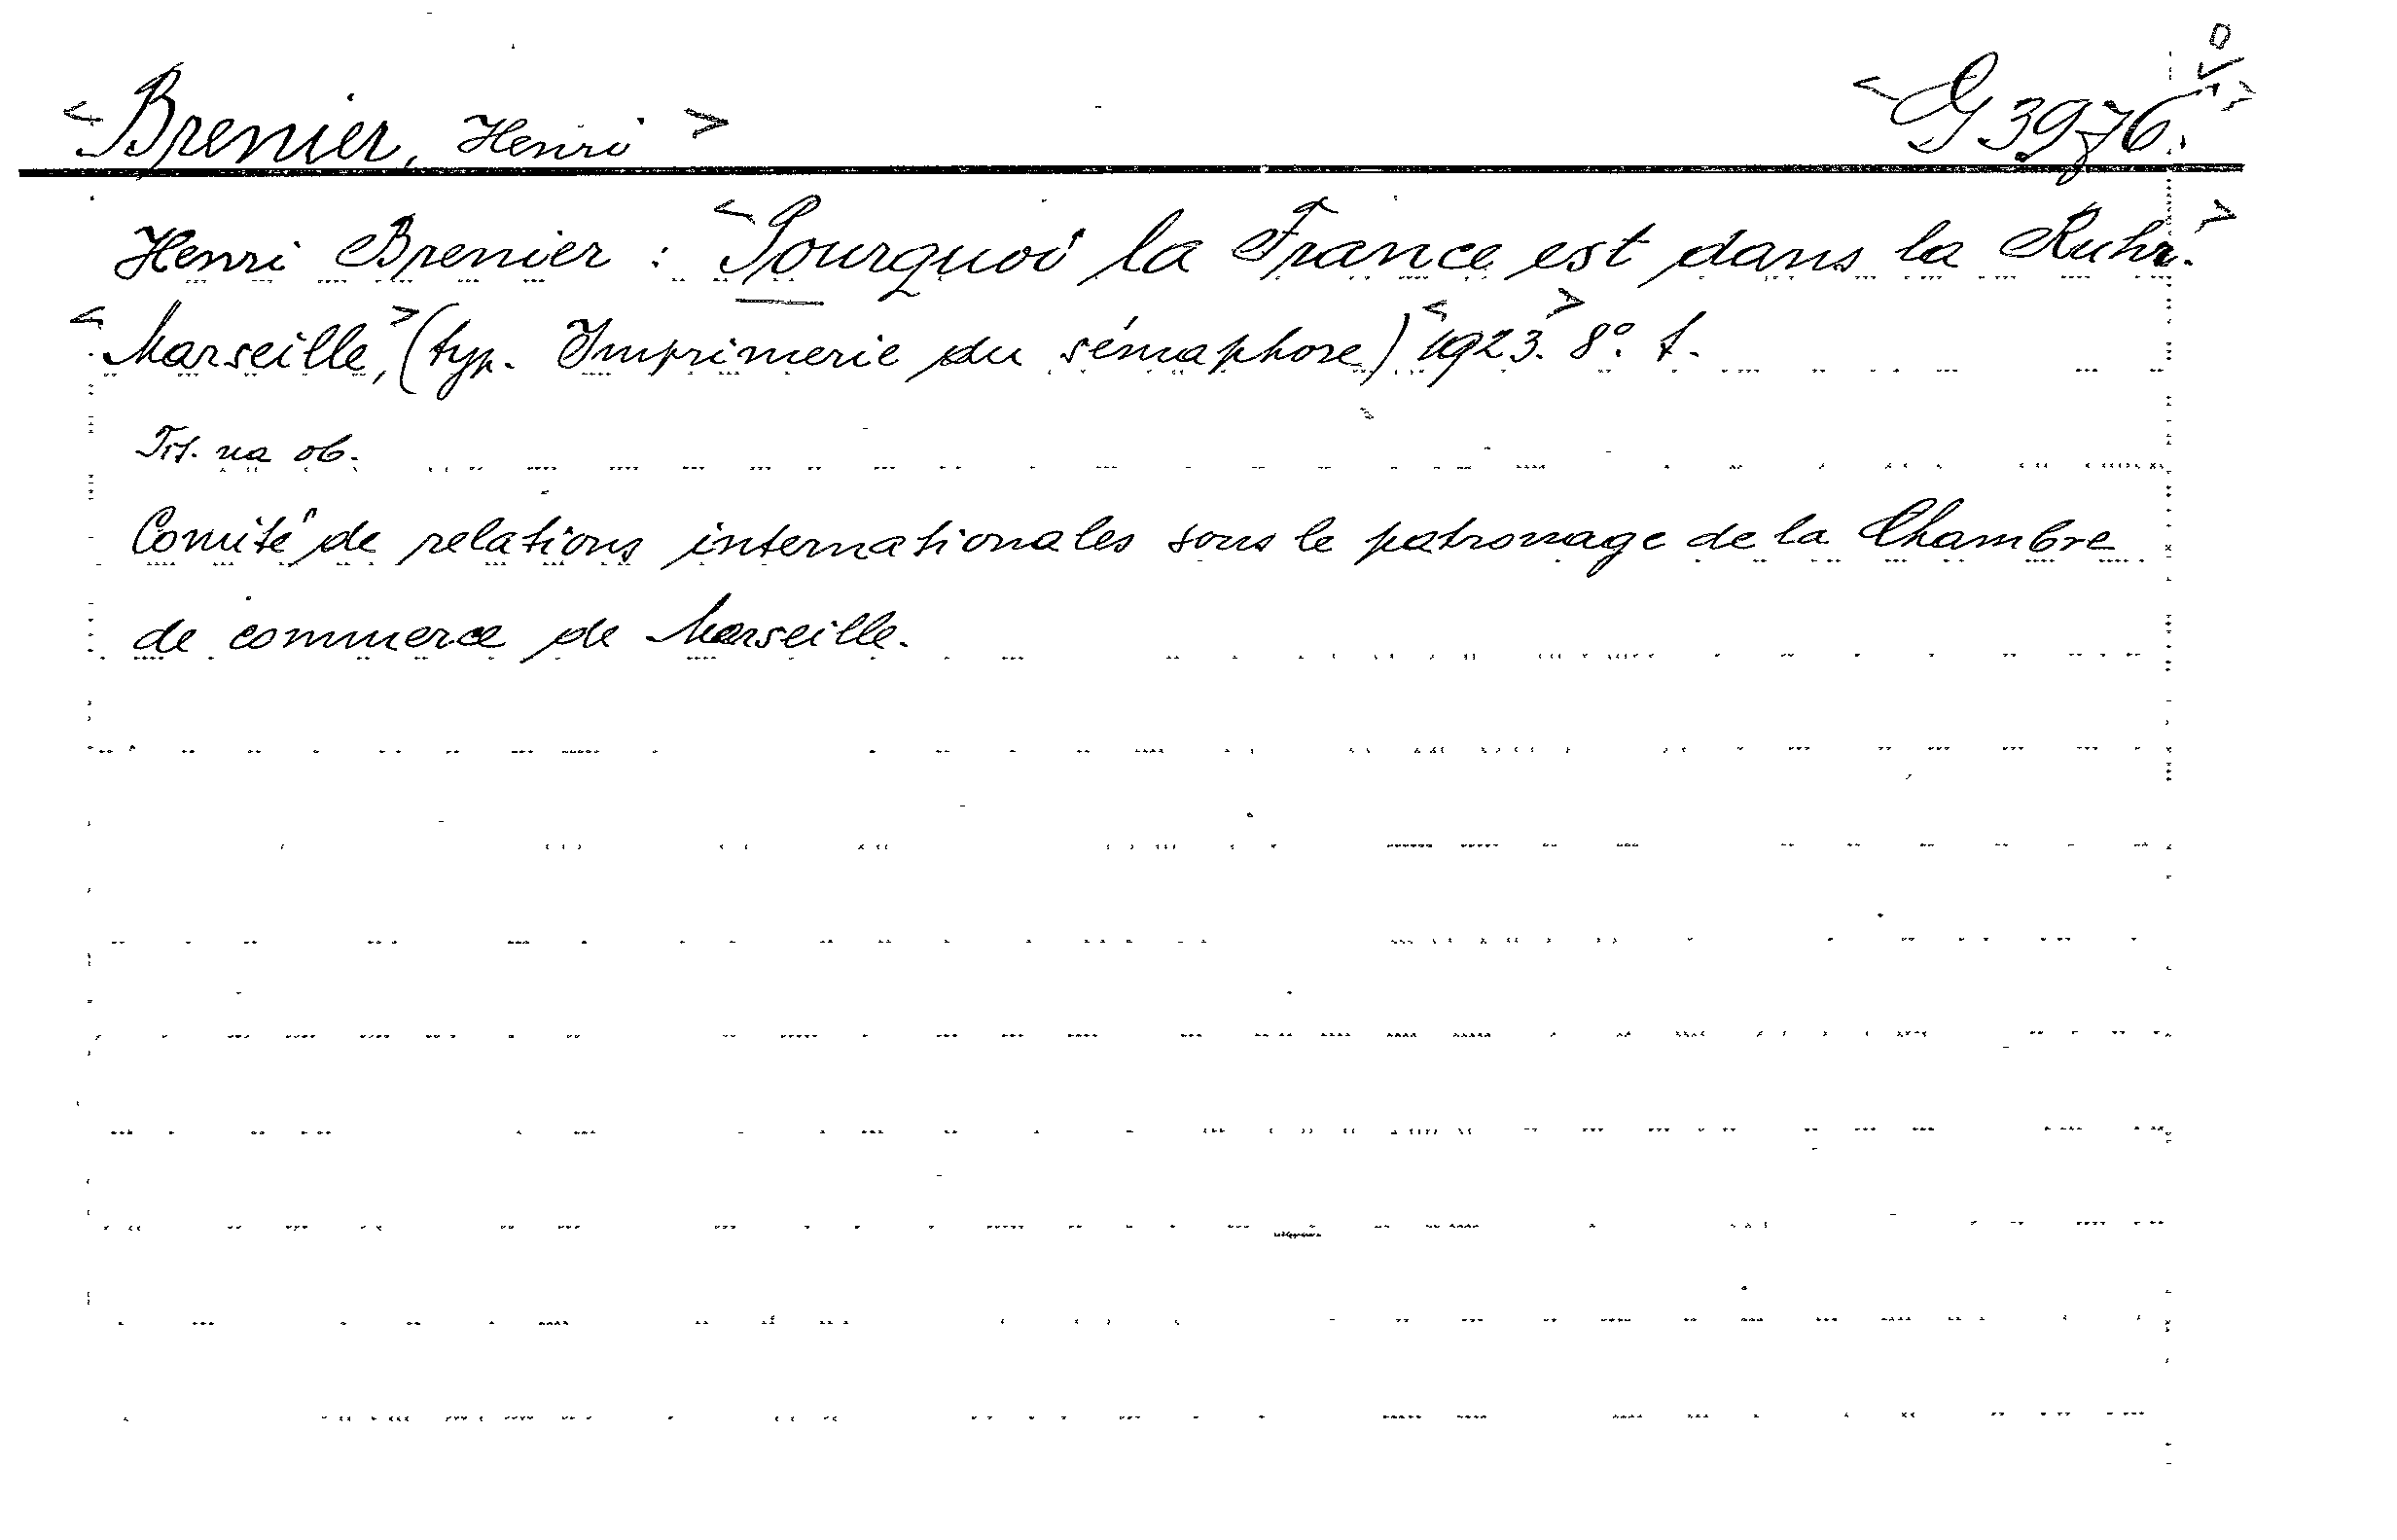 <Brenier, Henri> <G 3976.>
Henri Brenier : <Pourquoi la France est dans la Ruhr.>
<Marseille,> (typ. Imprimerie du sémaphore) <1923.> 8°. f.
Tit. na ob.
Comité de relations internationales sous le patronage de la Chambre
de commerce de Marseille.